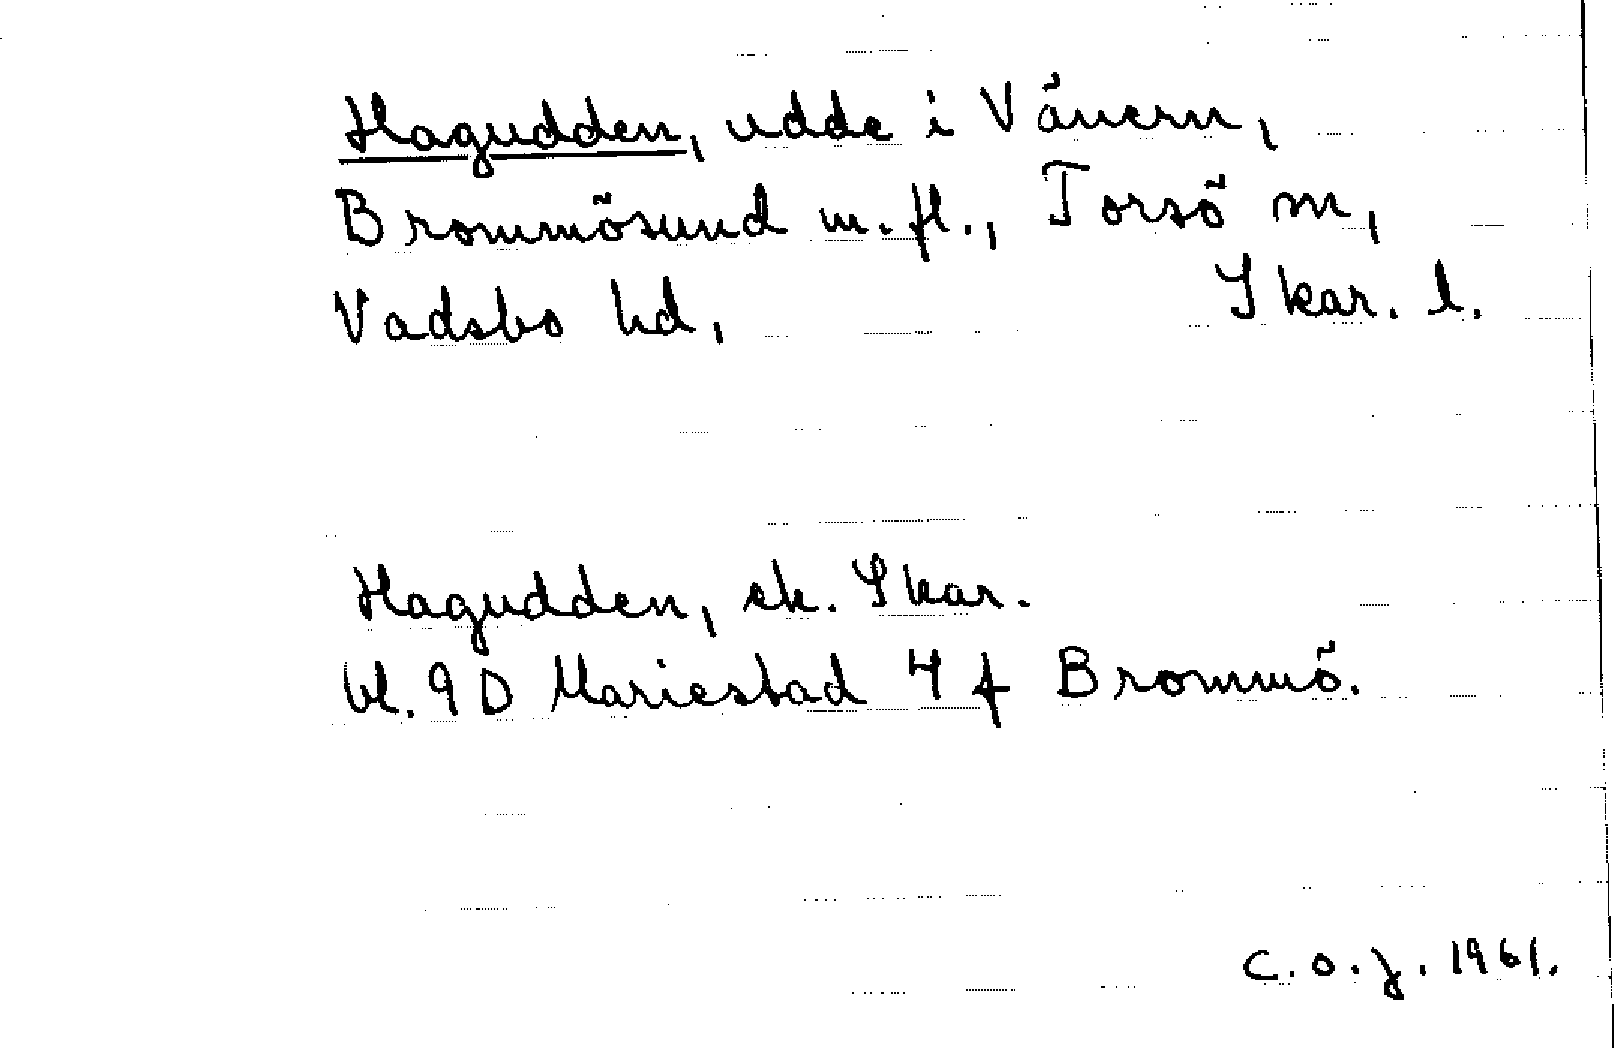 Hagudden, udde i Vänern,
Brommösund m.fl., Torsö sn,
Vadsbo hd, Skar. l.
Hagudden, ek. Skar.
bl. 9D Mariestad 4 f Brommö.
C.O.J. 1961.